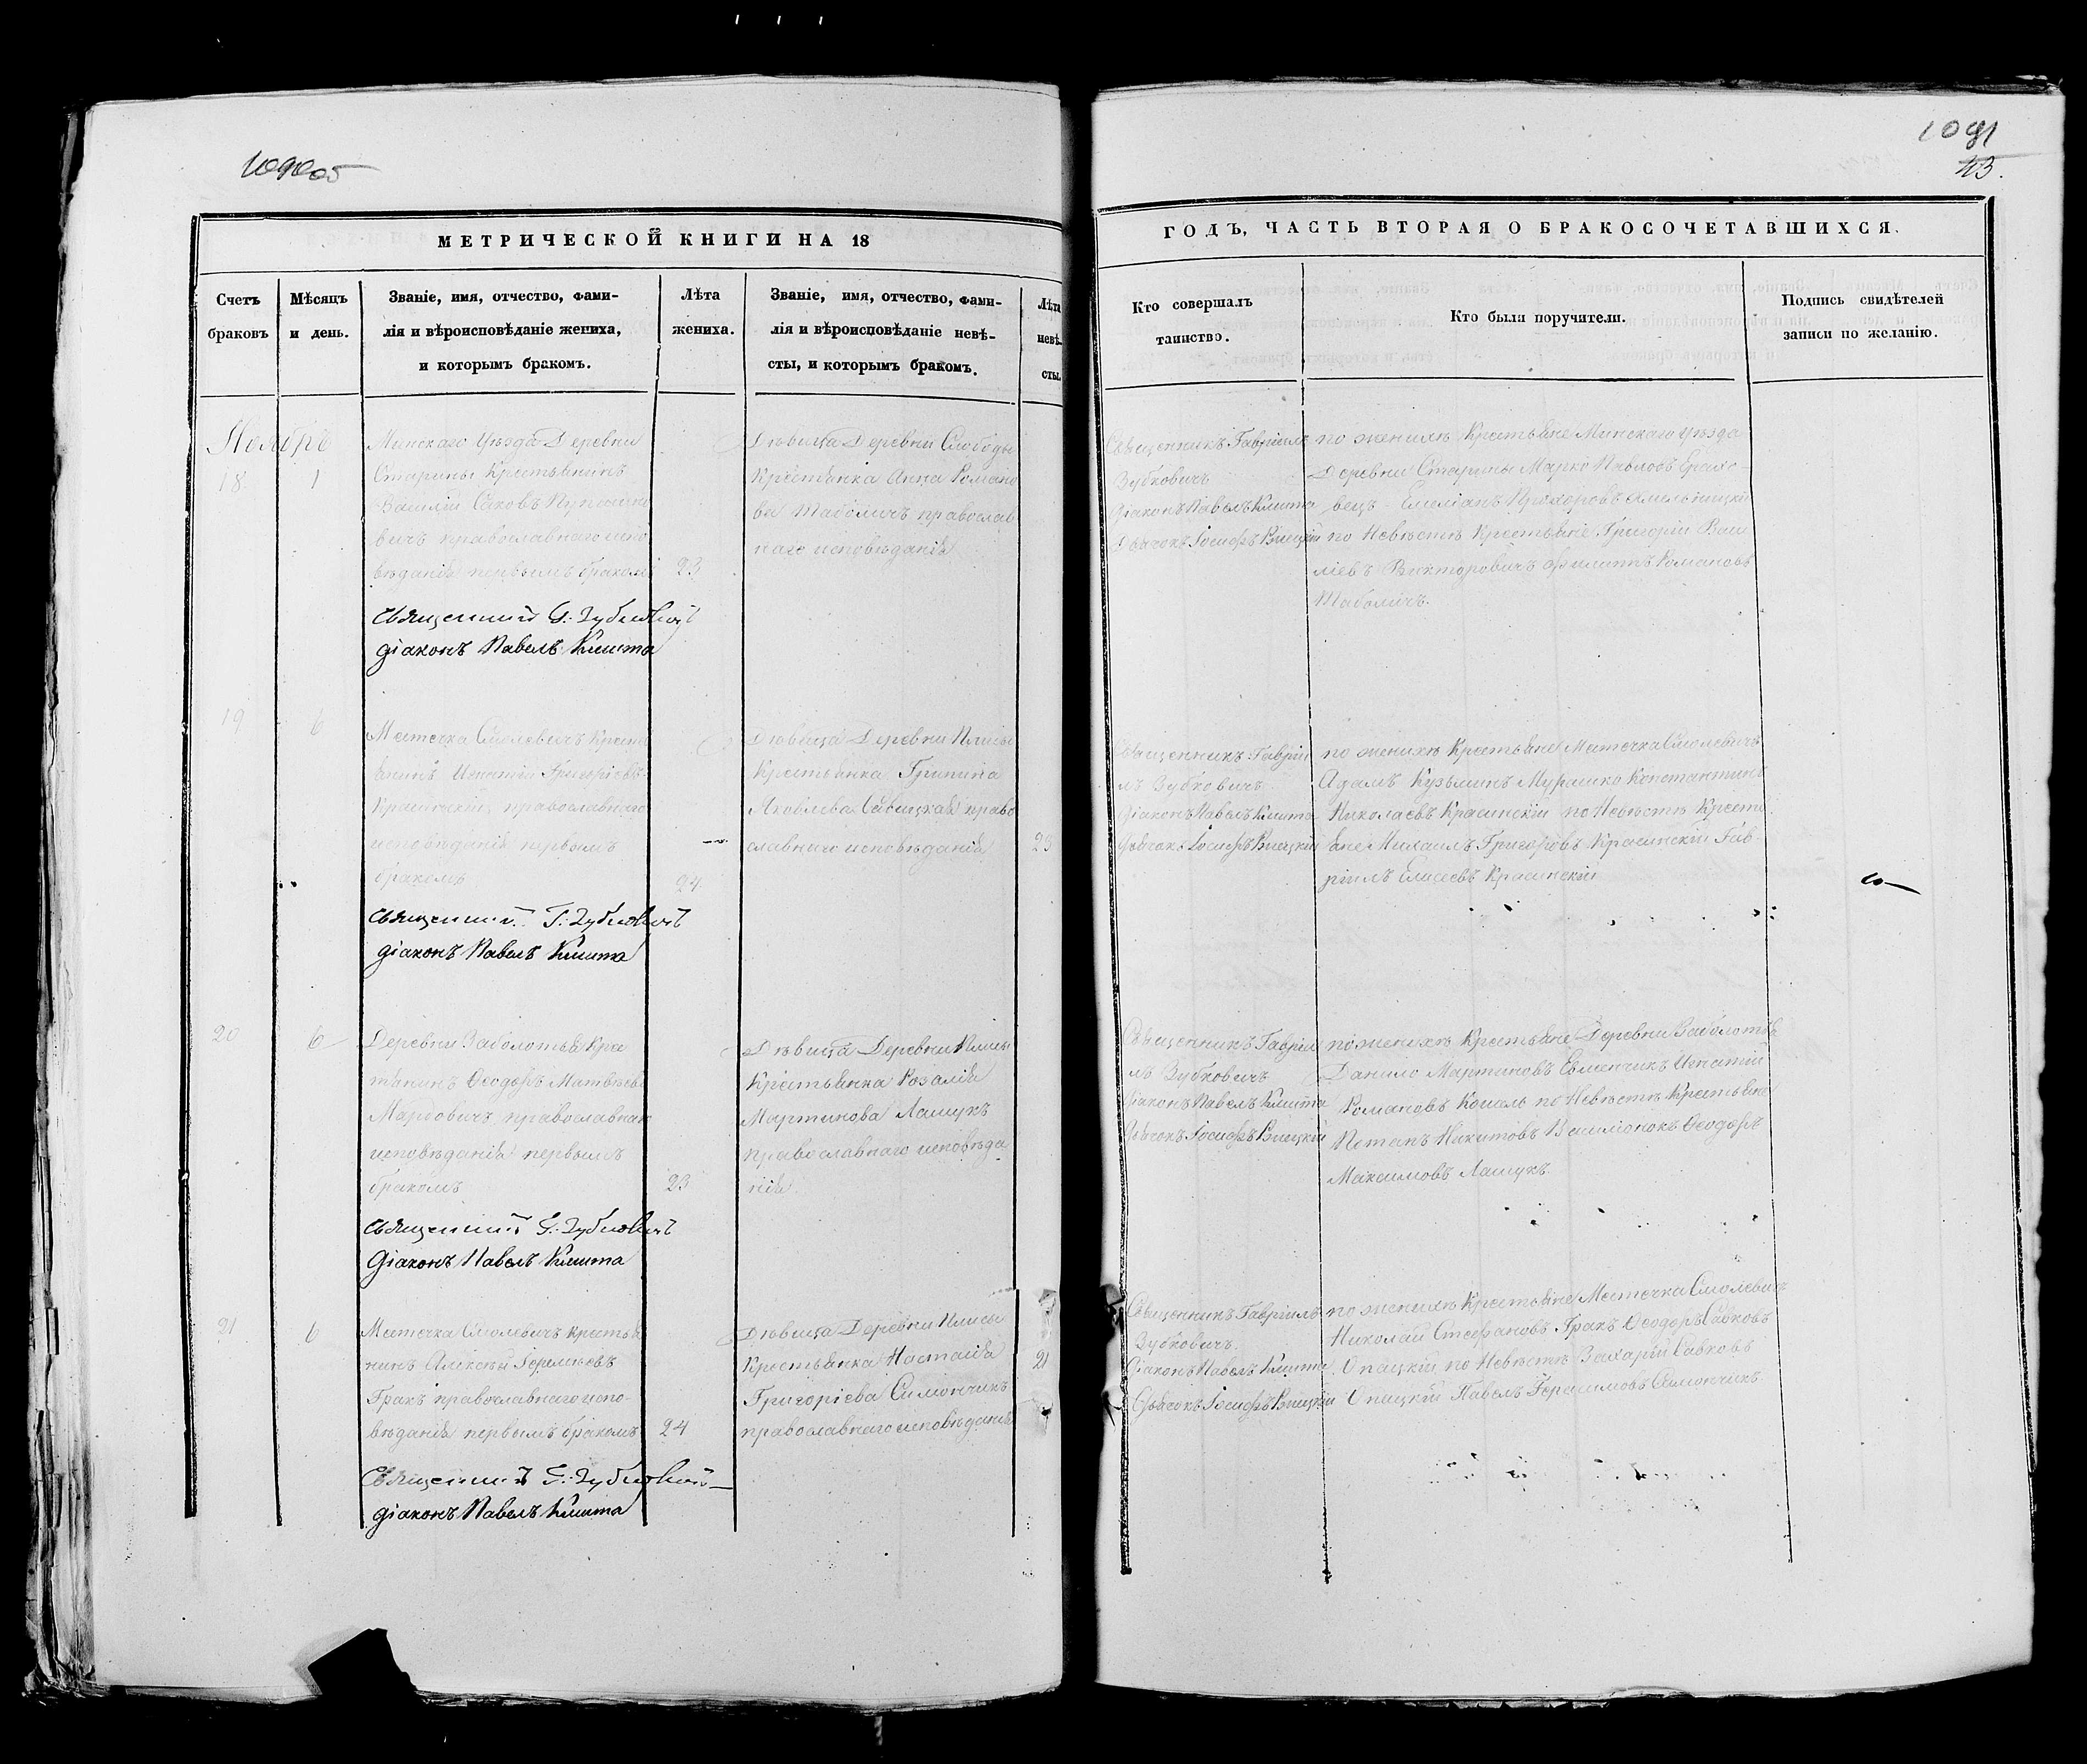 1091
43.
МЕТРИЧЕСКОЙ КНИГИ НА 18
ГОДЪ, ЧАСТЬ ВТОРАЯ О БРАКОСОЧЕТАВШИХСЯ.
Счетъ
браковъ
Мѣсяцъ
и день.
Званіе, имя, отчество, фами-
лія и вѣроисповѣданіе жениха,
и которымъ бракомъ.
Лѣта
жениха.
Званіе, имя, отчество, фами-
лія и вѣроисповѣданіе невѣ-
сты, и которымъ бракомъ.
Лѣта
невѣ-
сты.
Кто совершалъ
таинство.
Кто были поручители.
Подпись свидѣтелей
записи по желанію.
Ноябрь
18
1
Минскаго уѣзда Деревни
Старины Крестьянинъ
Василій
вичъ православнаго испо
вѣданія первымъ бракомъ
23
Священникъ Г. Зубковичъ
діаконъ Павелъ Кмита
Дѣвица Деревни Слободы
Крестьянка Анна Романо
ва Таболичъ православ
наго исповѣданія
Священникъ Гавріилъ
Зубковичъ
Діаконъ Павелъ Кмита
Дьячокъ Іосифъ
по женихѣ Крестьяне Минскаго уѣзда
Деревни Старины Марко Павловъ
вецъ Емеліанъ Прохоровъ Омельницкій
по Невѣстѣ Крестьяне Григорій Васи
ліевъ Викторовичъ Филиппъ Романовъ
Таболичъ.
19
6
Местечка Смолевичъ Кресть
янинъ Игнатій Григоріевъ
Красинскій православнаго
исповѣданія первымъ
бракомъ
24
Священникъ Г. Зубковичъ
діаконъ Павелъ Кмита
Дѣвица Деревни Плисы
Крестьянка Грипина
Яковлева Савицкая право
славнаго исповѣданія
23
Священникъ Гаврии
лъ Зубковичъ
Діаконъ Павелъ Кмита
Дьячокъ Іосифъ
по женихѣ Крестьяне Местечка Смолевичъ
Адамъ Кузьминъ Мурашко Константинъ
Николаевъ Красинскій по Невѣстѣ Кресть
яне Михаилъ Григоровъ Красинскій Гав-
ріилъ Елисеевъ Красинскій
20
6
Деревни Заболотья Кре
стьянинъ Ѳеодоръ Матвѣевъ
Мардовичъ православнаго
исповѣданія первымъ
бракомъ
23
Священникъ Г. Зубковичъ
Діаконъ Павелъ Кмита
Дѣвица Деревни Плисы
Крестьянка Розалія
Мартинова Лашукъ
православнаго исповѣда
нія
Священникъ Гавріи
лъ Зубковичъ
Діаконъ Павелъ Кмита
Дьячокъ Іосифъ
по женихѣ Крестьяне Деревни Заболотья
Данило Мартиновъ Евменчикъ Игнатій
Романовъ Кошель по Невѣстѣ Крестьяне
Потапъ Никитовъ Ѳеодоръ
Максимовъ Лашукъ
21
6
Местечка Смолевичъ Крестья
нинъ Алексѣй
Гракъ православнаго испо-
вѣданія первымъ бракомъ
24
Священникъ Г. Зубковичъ
діаконъ Павелъ Кмита
Дѣвица Деревни Плисы
Крестьянка Настасія
Григоріева Симончикъ
православнаго исповѣданія
21
Священникъ Гавріилъ
Зубковичъ
Діаконъ Павелъ Кмита
Дьячокъ Іосифъ
по женихѣ Крестьяне Местечка Смолевичъ
Николай Стефановъ Гракъ Ѳеодоръ Савковъ
Опацкій по Невѣстѣ Захарій Савковъ
Опацкій Павелъ Герасимовъ Симончикъ